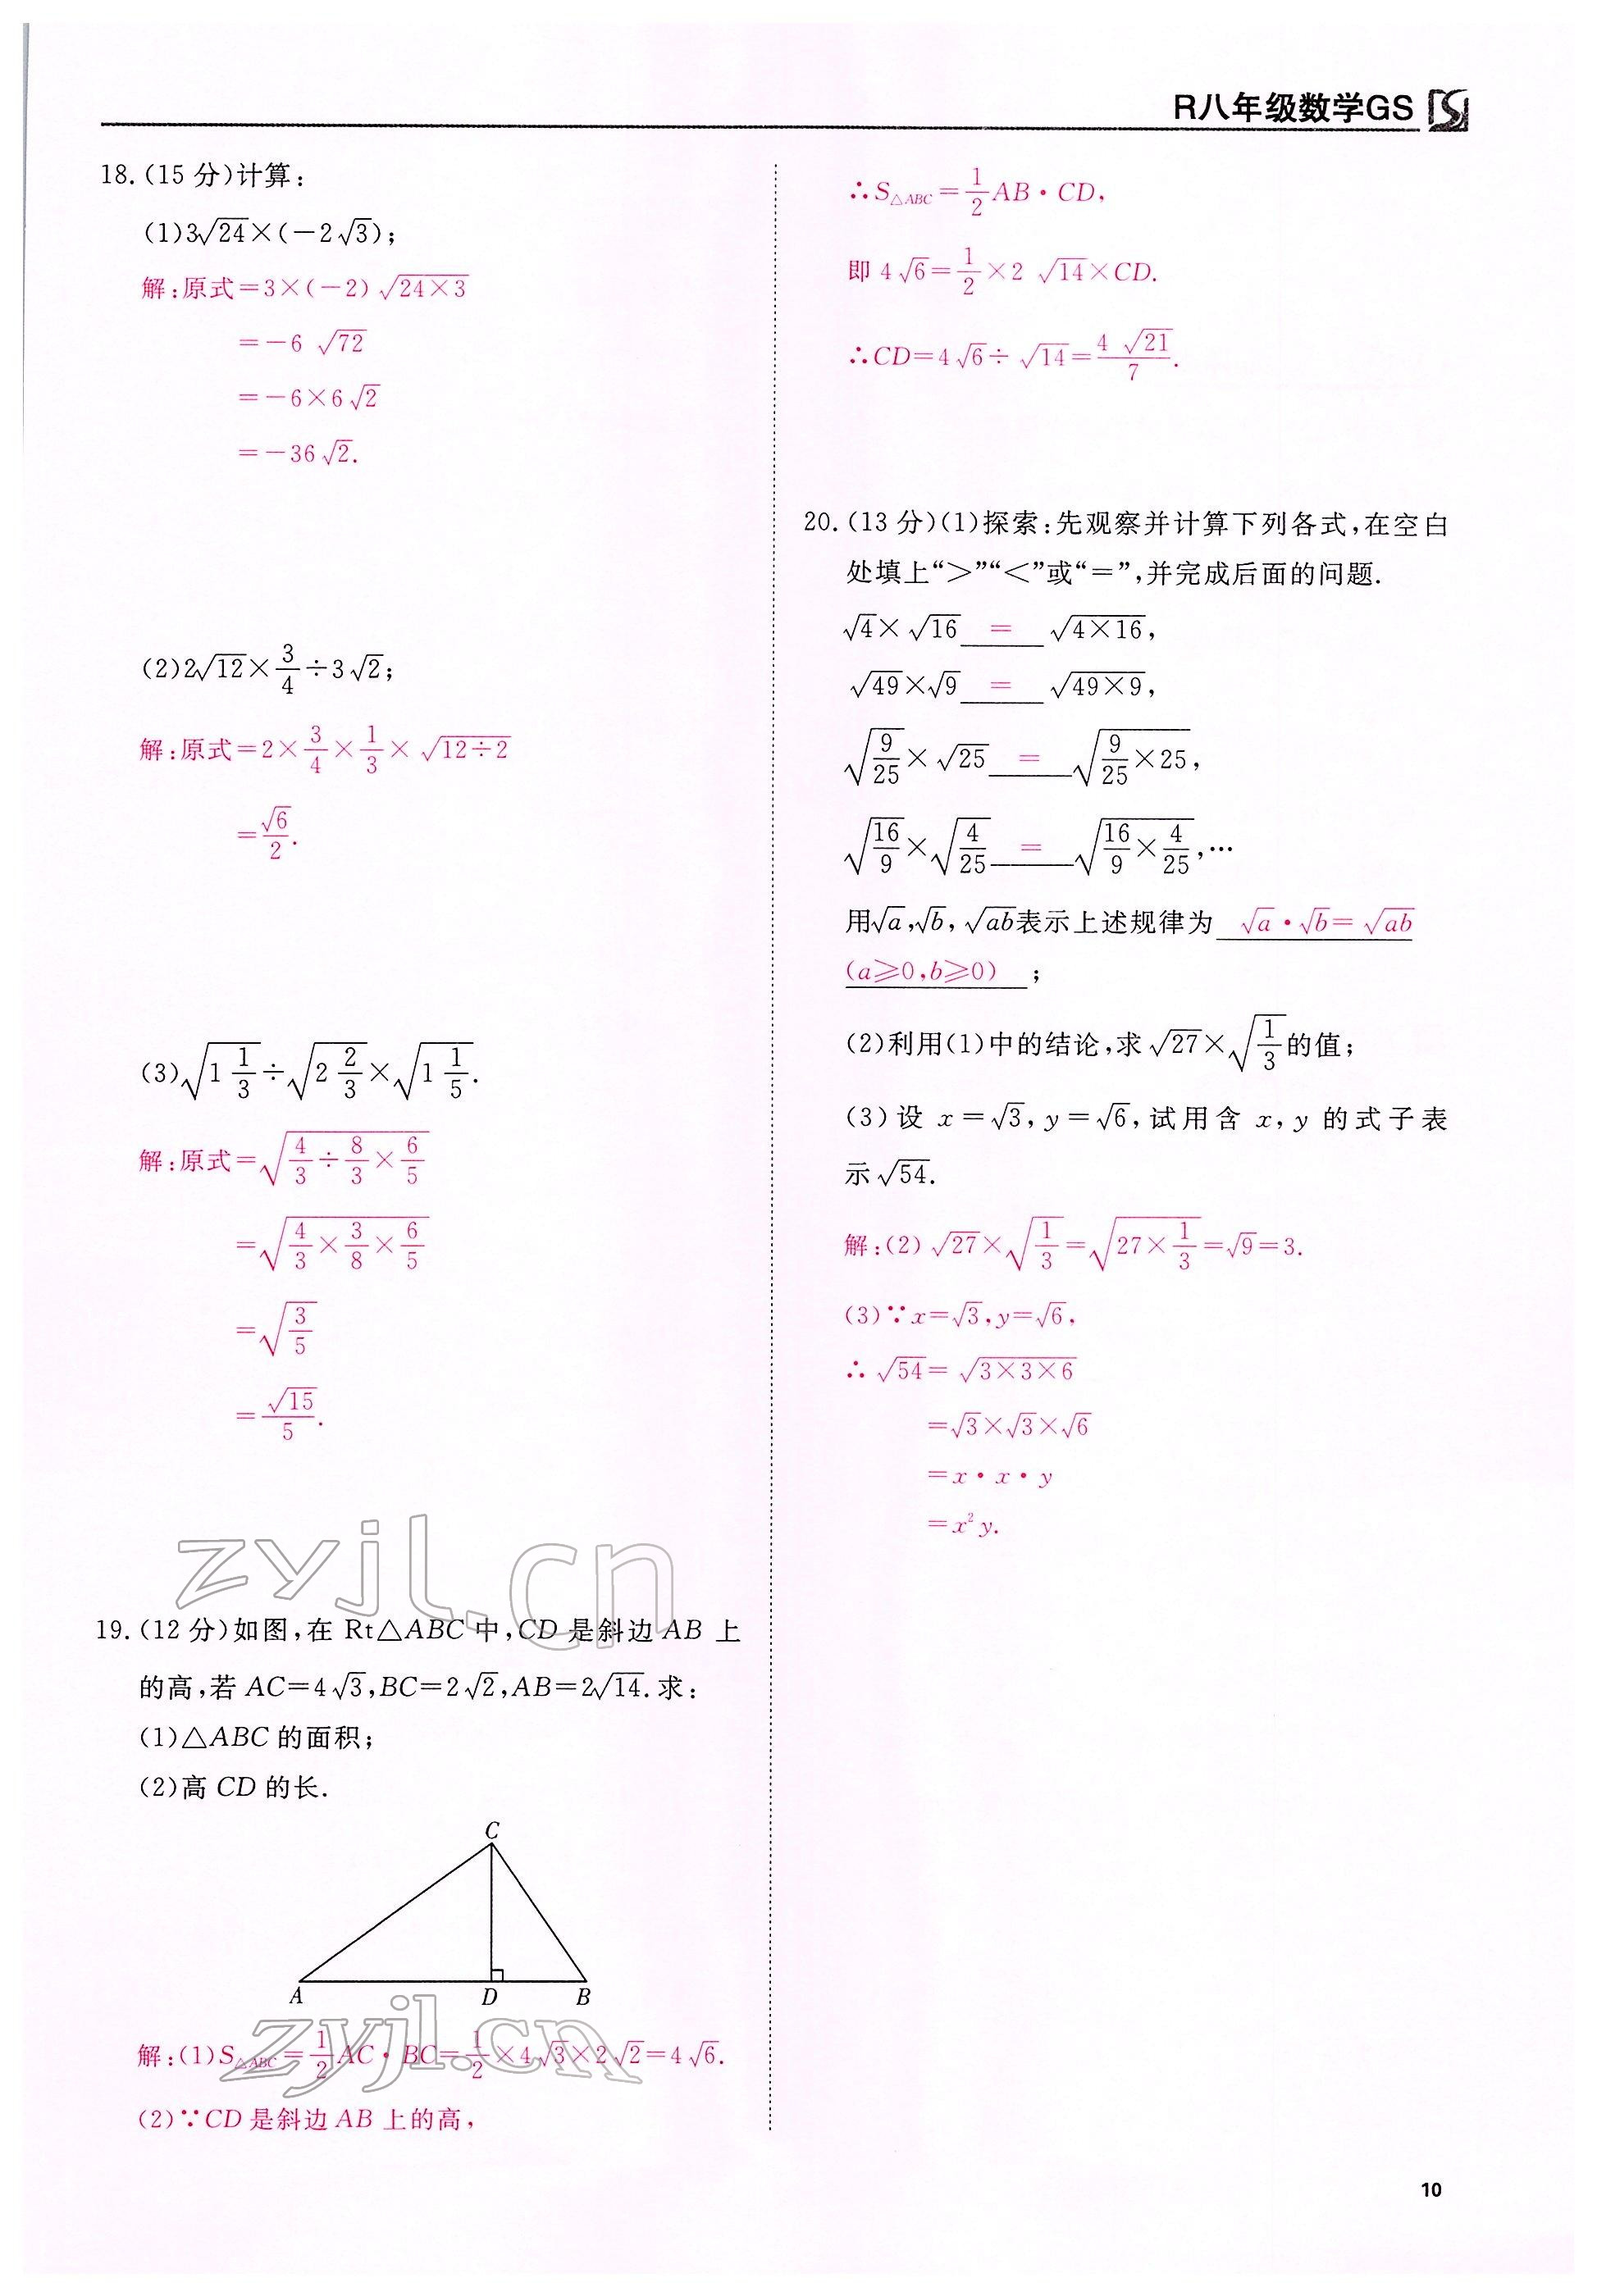 R八年级数学GS
18.(15 分)计算:
(1)3√24×(−2√3);
解:原式=3×(−2)√(24×3)
=−6 √72
=−6×6√2
=−36√2.
(2)2√12×3/4÷3√2;
解:原式=2×3/4×1/3×√(12÷2)
=√6/2.
(3)√(1 1/3)÷√(2 2/3)×√(1 1/5).
解:原式=√(4/3÷8/3×6/5)
=√(4/3×3/8×6/5)
=√(3/5)
=√15/5.
19.(12 分)如图,在 Rt△ABC 中,CD 是斜边 AB 上
的高,若 AC=4√3,BC=2√2,AB=2√14.求:
(1)△ABC 的面积;
(2)高 CD 的长.
C
A
D
B
解:(1)S△ABC=1/2 AC·BC=1/2×4√3×2√2=4√6.
(2)∵CD 是斜边 AB 上的高,
∴S△ABC=1/2 AB·CD,
即 4√6=1/2×2 √14×CD.
∴CD=4√6÷√14=4√21/7.
20.(13 分)(1)探索:先观察并计算下列各式,在空白
处填上“>”“<”或“=”,并完成后面的问题.
√4×√16 = √(4×16),
√49×√9 = √(49×9),
√(9/25)×√25 = √(9/25×25),
√(16/9)×√(4/25) = √(16/9×4/25),…
用√a,√b,√ab表示上述规律为 √a·√b=√ab
(a≥0,b≥0) ;
(2)利用(1)中的结论,求√27×√(1/3)的值;
(3)设 x=√3,y=√6,试用含 x,y 的式子表
示√54.
解:(2)√27×√(1/3)=√(27×1/3)=√9=3.
(3)∵x=√3,y=√6,
∴√54=√(3×3×6)
=√3×√3×√6
=x·x·y
=x²y.
zyjl.cn
zyjl.cn
10